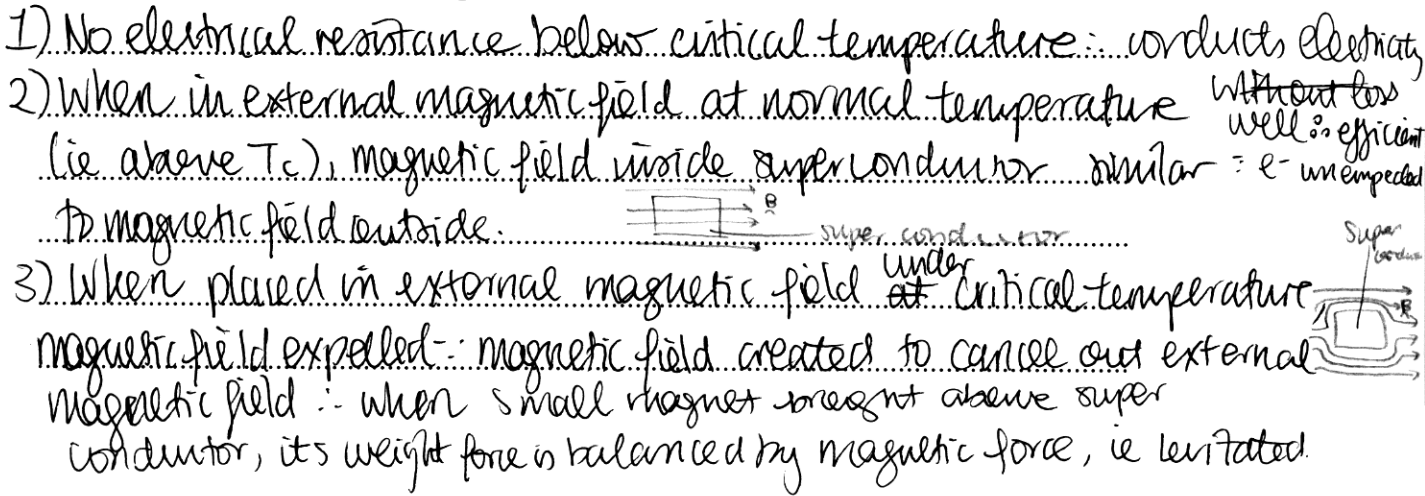 1) No electrical resistance below critical temperature ∴ conducts electricity
~~without loss~~
well ∴ efficient
2) When in external magnetic field at normal temperature
(ie above Tc), magnetic field inside superconductor similar
∵ e- unempeded
to magnetic field outside.
B
super conductor
3) When placed in external magnetic field ~~at~~ under critical temperature
magnetic field expelled ∵ magnetic field created to cancel out external
Super
B
magnetic field ∴ when small magnet brought above super
conductor, its weight force is balanced by magnetic force, ie levitated.